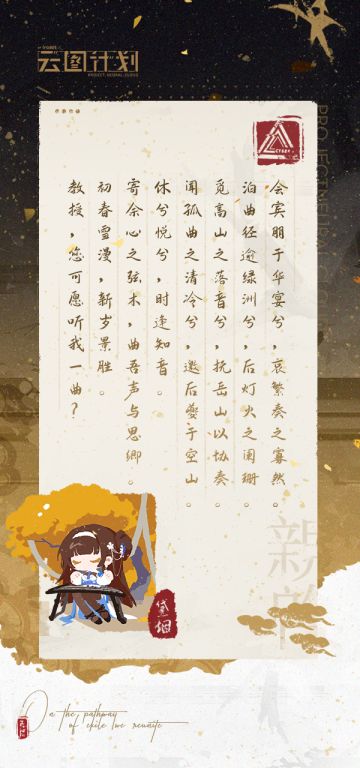 云图计划
PROJECT NEURAL CLOUD
会宾朋于华宴兮，哀繁奏之寡然。
泊曲径逾绿洲兮，后灯火之阑珊。
觅高山之落音兮，抚岳山以协奏。
闻孤曲之清冷兮，邀后夔于空山。
休兮悦兮，时逢知音。
寄余心之弦木，曲吾声与思卿。
初春雪漫，新岁景胜。
教授，您可愿听我一曲？
黛烟
On the pathway
of exile we reunite